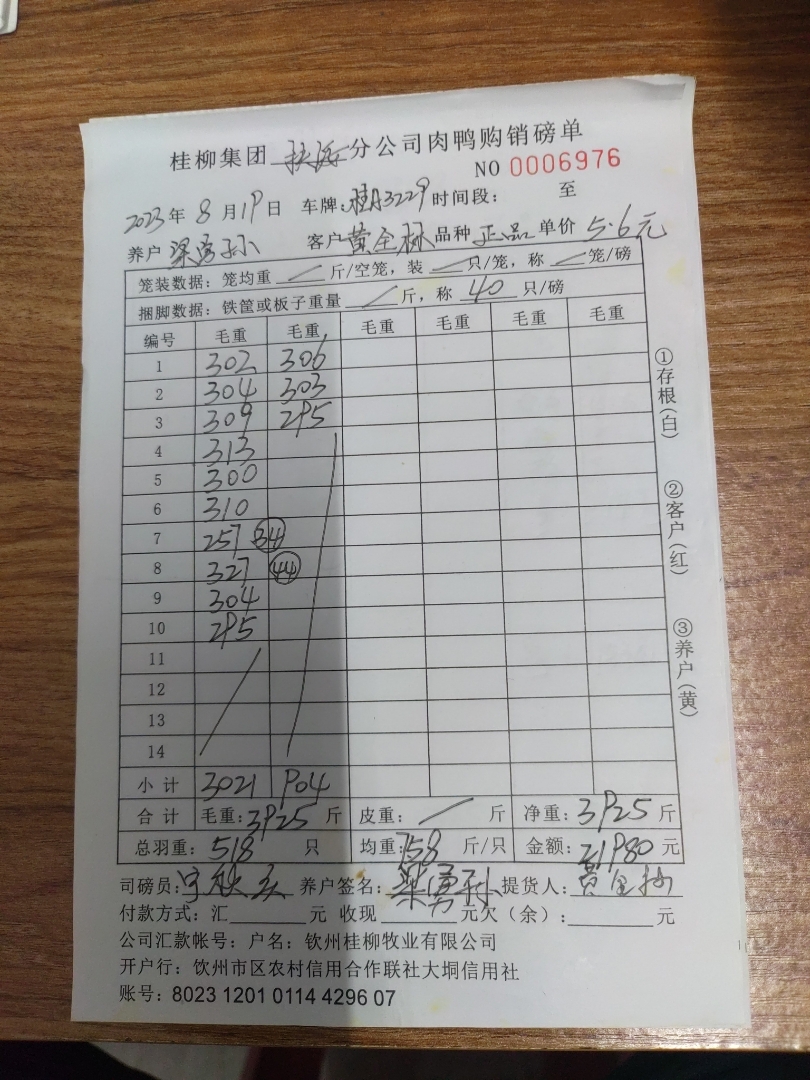 桂柳集团 分公司肉鸭购销磅单
NO 0006976
2023年8月19日 车牌:桂A3229 时间段: 至
养户 梁勇孙 客户 黄全林 品种 正品 单价 5.6元
笼装数据: 笼均重 / 斤/空笼, 装 / 只/笼, 称 / 笼/磅
捆脚数据: 铁筐或板子重量 / 斤, 称 40 只/磅
编号 毛重 毛重 毛重 毛重 毛重 毛重
1 302 306
2 304 303
3 309 295
4 313
5 300
6 310
7 257 34
8 327 44
9 304
10 295
11
12
13
14
小计 3021 904
合计 毛重:3925斤 皮重: / 斤 净重:3925斤
总羽重:518 只 均重:758 斤/只 金额:21980元
司磅员: 养户签名:梁勇孙 提货人:
付款方式:汇 元 收现 元 欠(余): 元
公司汇款帐号:户名:钦州桂柳牧业有限公司
开户行:钦州市区农村信用合作联社大垌信用社
账号:8023 1201 0114 4296 07
①存根(白)
②客户(红)
③养户(黄)